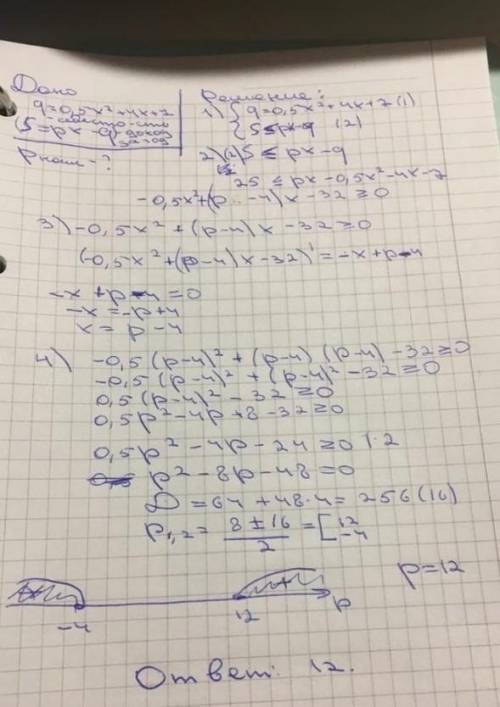 Дано
q=0,5x²+4x+7
- себест-сть
(S=px-q-доход
за год
Pнаим-?
Решение:
1) { q=0,5x²+4x+7 (1)
{ S≤px-q (2)
2) (2) S≤px-q
25≤px-0,5x²-4x-7
-0,5x²+(p-4)x-32≥0
3) -0,5x²+(p-4)x-32≥0
(-0,5x²+(p-4)x-32)'=-x+p-4
-x+p-4=0
-x=-p+4
x=p-4
4) -0,5(p-4)²+(p-4)(p-4)-32≥0
-0,5(p-4)²+(p-4)²-32≥0
0,5(p-4)²-32≥0
0,5p²-4p+8-32≥0
0,5p²-4p-24≥0 |·2
p²-8p-48=0
D=64+48·4=256(16)
P₁,₂=8±16/2=[12 -4
p=12
-4 12 p
Ответ: 12.